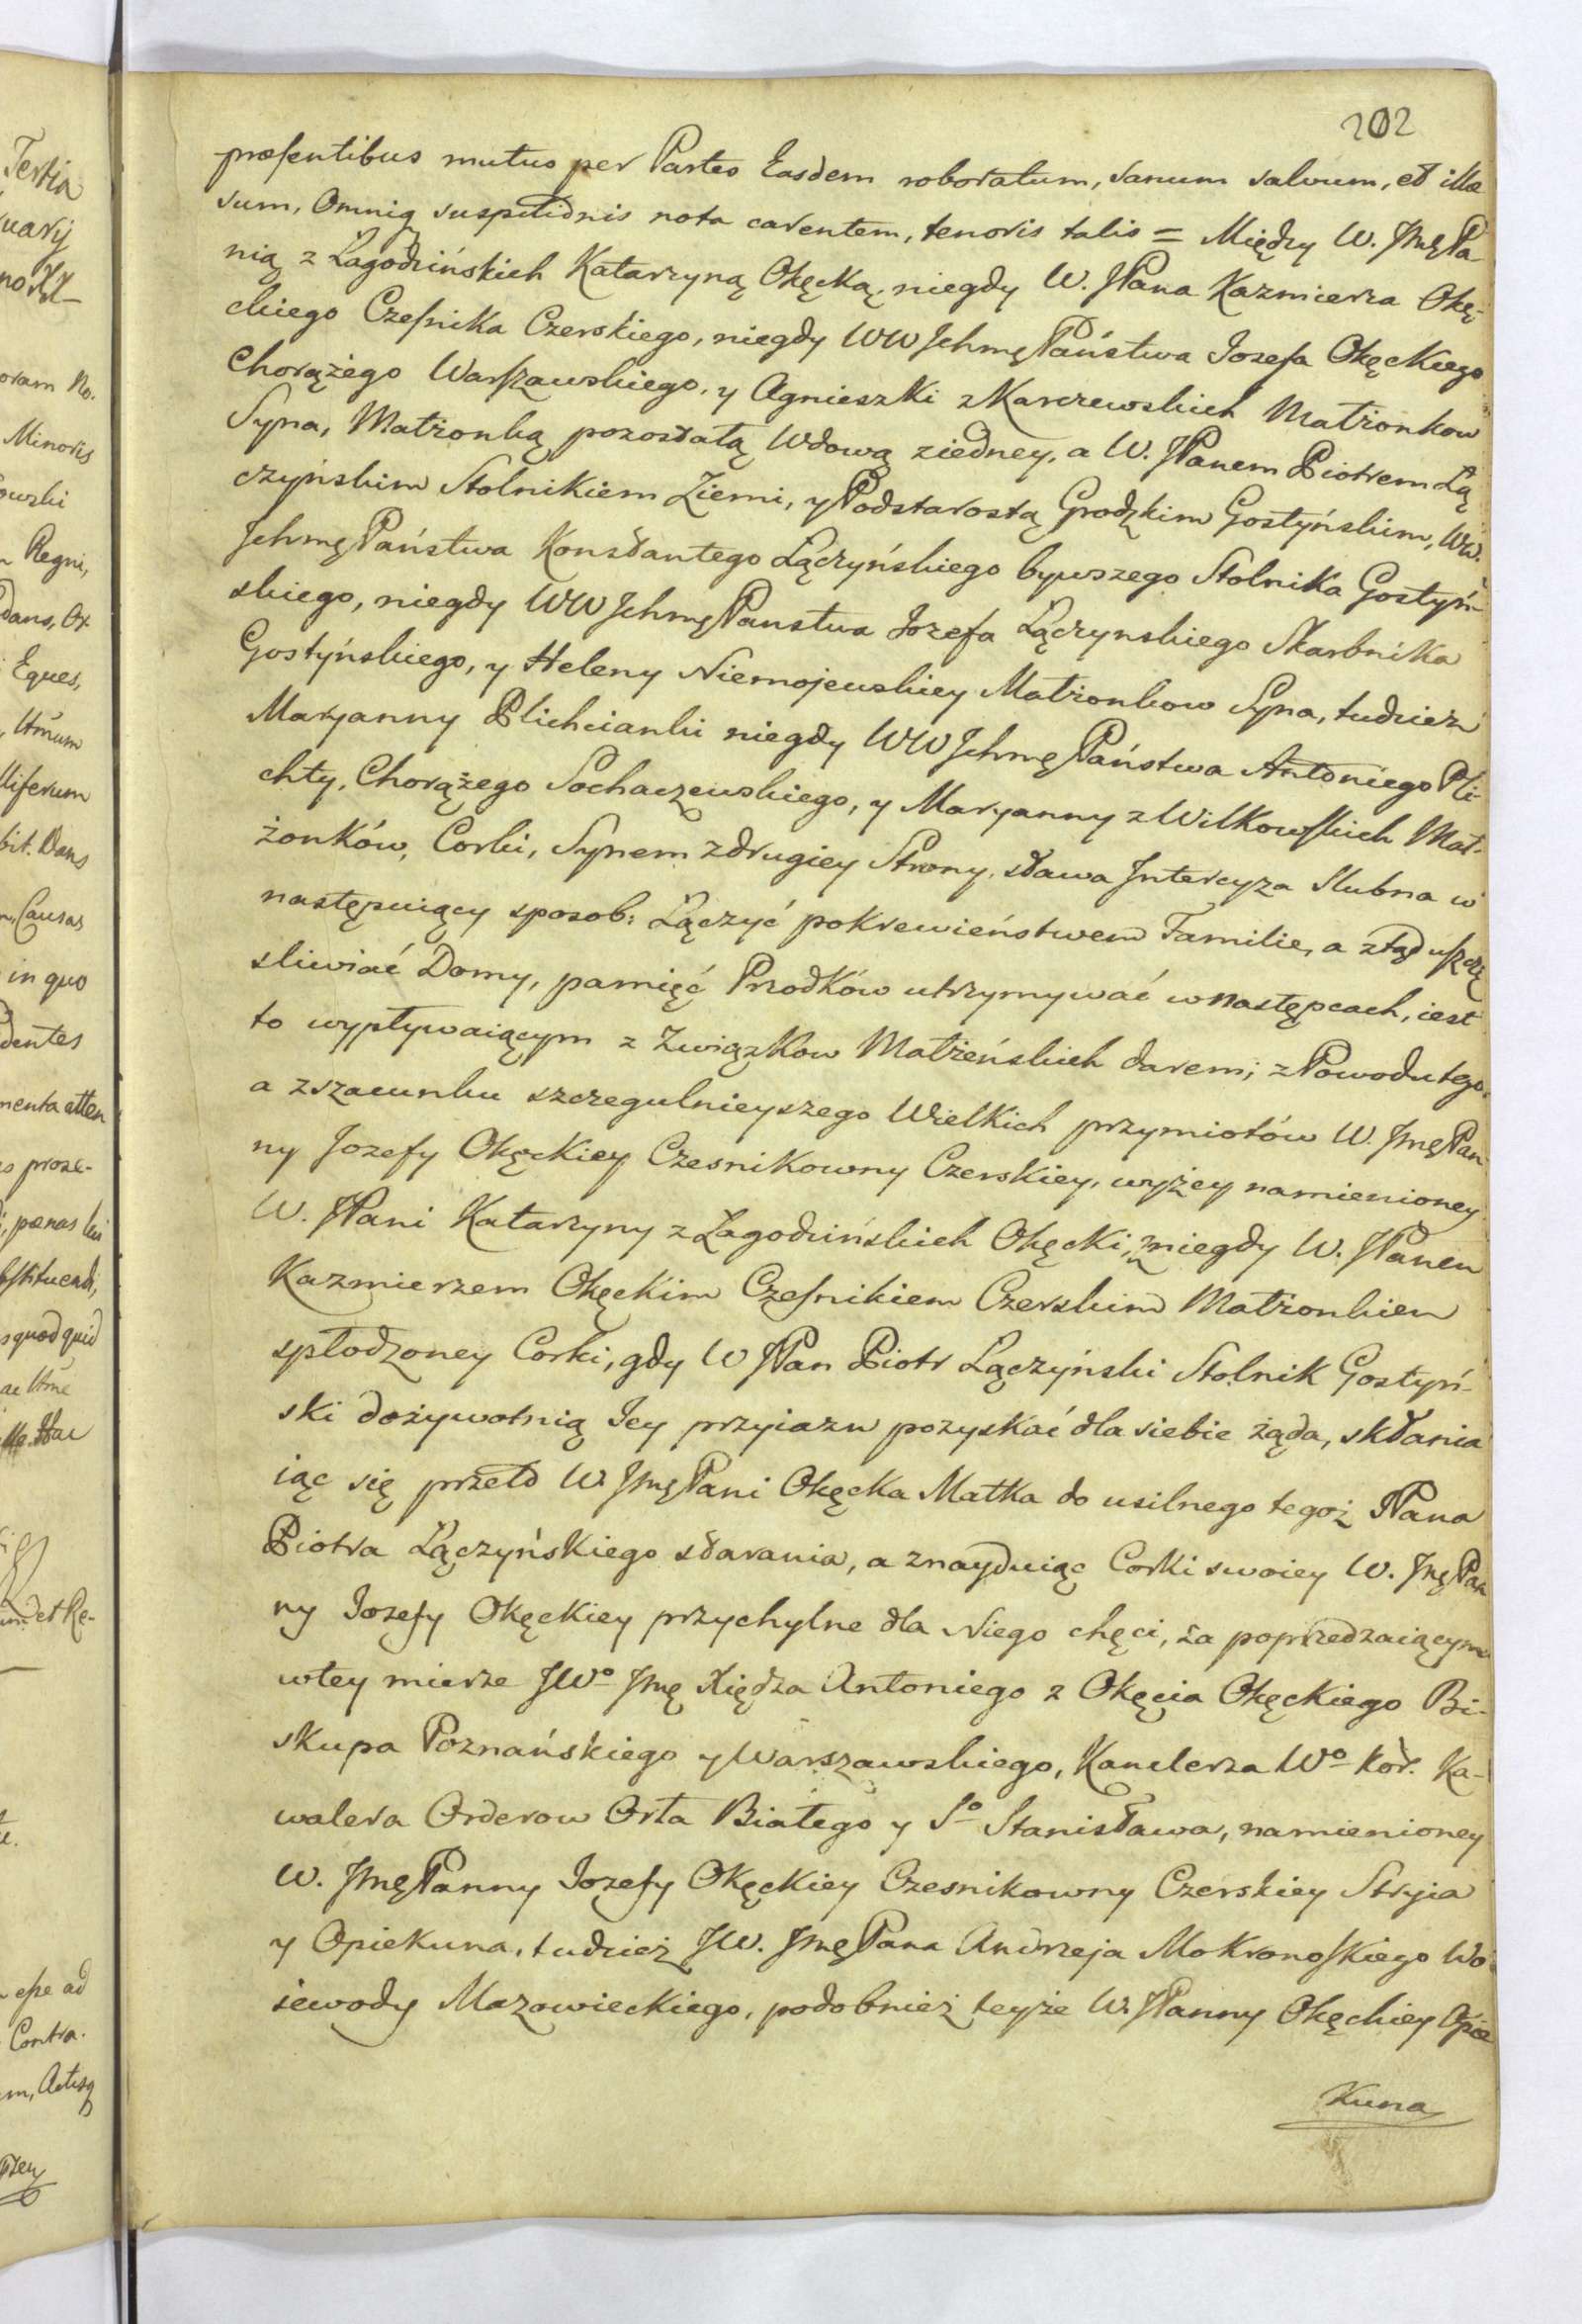 202
præsentibus mutuo per Partes Easdem roboratum, sanum salvum, et illæ
sum, Omniq suspitionis nota carentem, tenoris talis = Między W. JmęPa
nią z Łagodzińskich Katarzyną Okęcką, niegdy W. JPana Kazmierza Okę-
ckiego Czesnika Czerskiego, niegdy WW JchmęPaństwa Jozefa Okęckiego
Chorążego Warszawskiego, y Agnieszki z Karczewskich Małżonkow
Syna, Małżonką pozostałą Wdową ziedney, a W. JPanem Piotrem Łą
czyńskim Stolnikiem Ziemi, y Podstarostą Grodzkim Gostyńskim, WW.
JchmęPaństwa Konstantego Łączyńskiego bywszego Stolnika Gostyń-
skiego, niegdy WW JchmęPanstwa Jozefa Łączynskiego Skarbnika
Gostyńskiego, y Heleny Niemojewskiey Małżonkow Syna, tudzież
Maryanny Plichcianki niegdy WW JchmęPaństwa Antoniego Pli-
chty, Chorążego Sochaczewskiego, y Maryanny z Wilkowskich Mał-
żonków, Corki, Synem zdrugiey Strony, stawa Jntercyza Slubna w
następuiący sposob: Łączyć pokrewieństwem Familie, a ztąd uszczę
sliwiać Domy, pamięć Przodków utrzymywać w następcach, iest
to wypływaiącym z Związkow Małżeńskich darem; z Powodu tego,
a zszacunku szczegulnieyszego Wielkich przymiotów W. JmęPan
ny Jozefy Okęckiey Czesnikowny Czerskiey, wyżey namienioney
W. JPani Katarzyny z Łagodzińskich Okęcki, z niegdy W. JPanem
Kazmierzem Okęckim Czesnikiem Czerskim Małżonkiem
spłodzoney Corki, gdy W JPan Piotr Łączyński Stolnik Gostyń-
ski dożywotnią Jey przyiazn pozyskać dla siebie żąda, skłania
iąc się przeto W. JmęPani Okęcka Matka do usilnego tegoż JPana
Piotra Łączyńskiego starania, a znayduiąc Corki swoiey W. JmęPan
ny Jozefy Okęckiey przychylne dla Niego chęci, za poprzedzaiącym
wtey mierze JWo Jmę Xiędza Antoniego z Okęcia Okęckiego Bi-
skupa Poznańskiego y Warszawskiego, Kanclerza Wo Kor. Ka-
walera Orderow Orła Białego y So Stanisława, namienioney
W. JmęPanny Jozefy Okęckiey Czesnikowny Czerskiey Stryia
y Opiekuna, tudzież JW. JmęPana Andrzeja Mokronoskiego Wo
iewody Mazowieckiego, podobnież teyże W. JPanny Okęckiey Opie
kuna
Tertia
Minoris
Regni,
Eques,
in quo